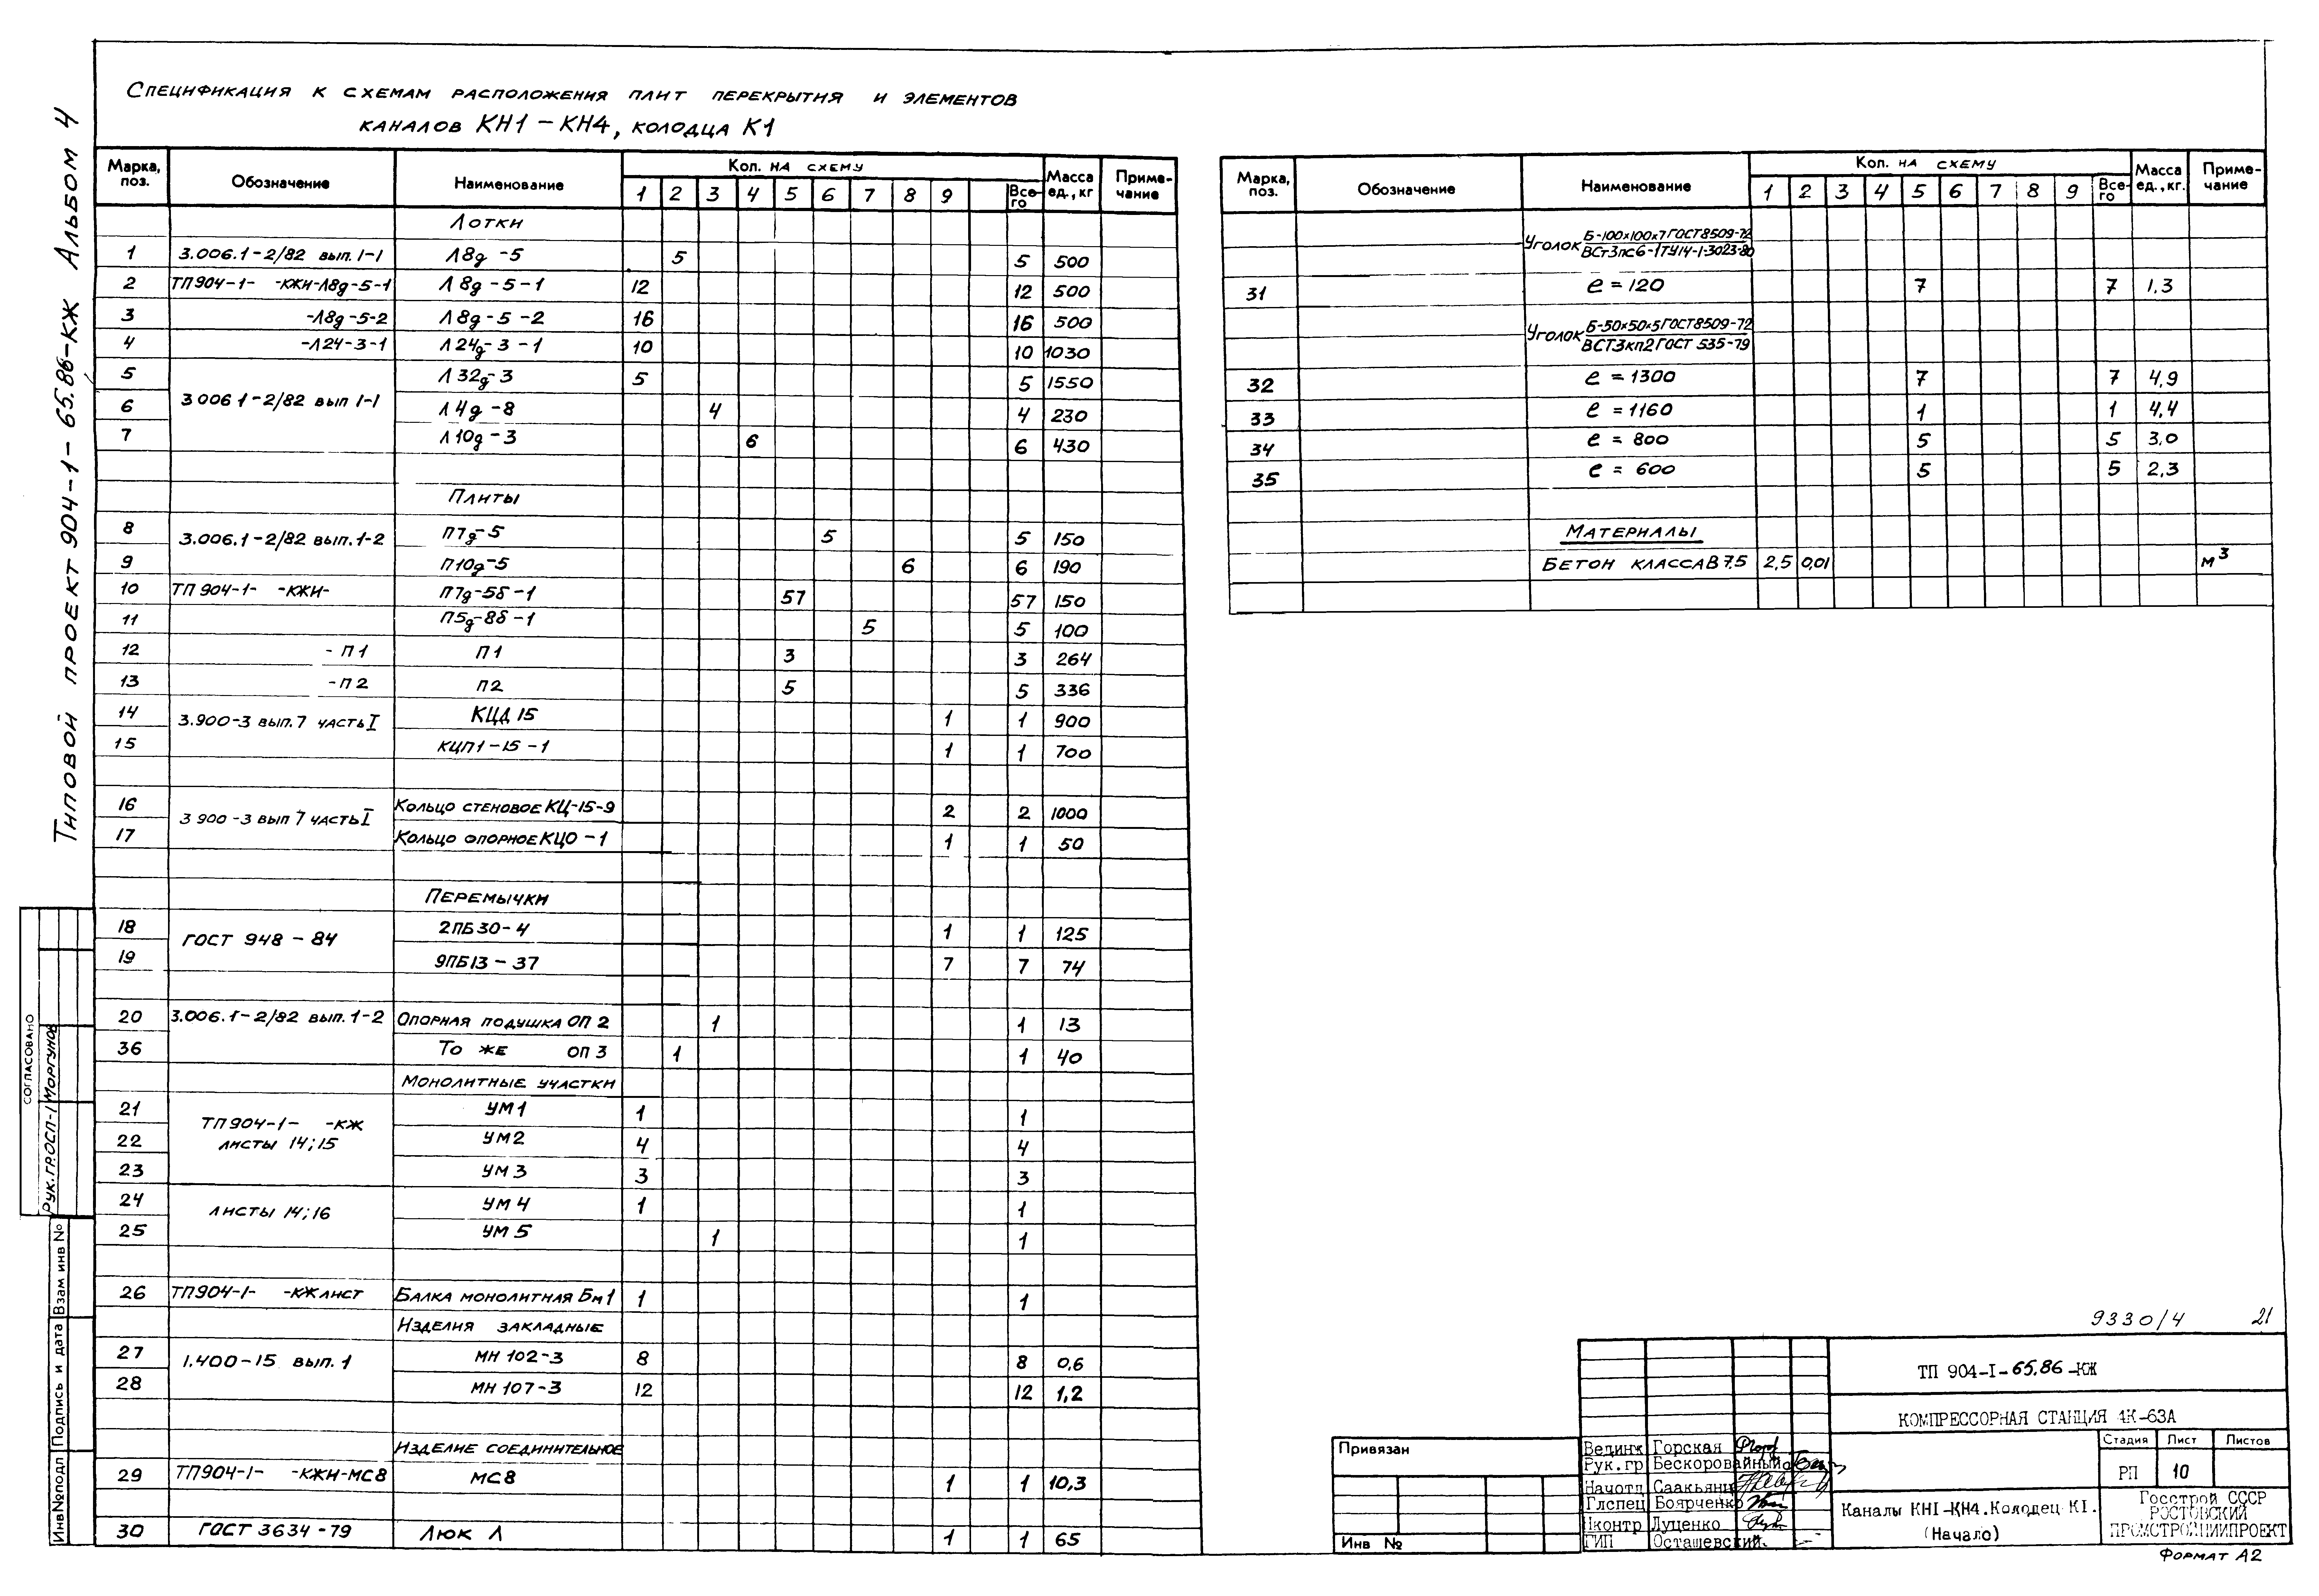 Типовой проект 904-1-65.86-КЖ Альбом 4
Спецификация к схемам расположения плит перекрытия и элементов
каналов КН1-КН4, колодца К1
Марка, поз. Обозначение Наименование Кол. на схему Масса ед., кг Приме-чание
1 2 3 4 5 6 7 8 9 Все-го
Лотки
1 3.006.1-2/82 вып. 1-1 Л8д-5 5 5 500
2 ТП904-1- -КЖИ-Л8д-5-1 Л8д-5-1 12 12 500
3 -Л8д-5-2 Л8д-5-2 16 16 500
4 -Л24-3-1 Л24д-3-1 10 10 1030
5 Л32д-3 5 5 1550
3 006 1-2/82 вып 1-1
6 Л4д-8 4 4 230
7 Л10д-3 6 6 430
Плиты
8 П7д-5 5 5 150
3.006.1-2/82 вып. 1-2
9 П10д-5 6 6 190
10 ТП 904-1- -КЖИ- П7д-5б-1 57 57 150
11 П5д-8б-1 5 5 100
12 -П1 П1 3 3 264
13 -П2 П2 5 5 336
14 КЦД 15 1 1 900
3.900-3 вып. 7 часть I
15 КЦП1-15-1 1 1 700
16 Кольцо стеновое КЦ-15-9 2 2 1000
3 900-3 вып 7 часть I
17 Кольцо опорное КЦО-1 1 1 50
Перемычки
18 2ПБ30-4 1 1 125
ГОСТ 948-84
19 9ПБ13-37 7 7 74
20 3.006.1-2/82 вып. 1-2 Опорная подушка ОП 2 1 1 13
36 То же ОП 3 1 1 40
Монолитные участки
21 УМ1 1 1
ТП904-1- -КЖ
22 листы 14;15 УМ2 4 4
23 УМ3 3 3
24 УМ4 1 1
листы 14;16
25 УМ5 1 1
26 ТП904-1- -КЖ лист Балка монолитная Бм1 1 1
Изделия закладные
27 1.400-15 вып. 1 МН 102-3 8 8 0,6
28 МН 107-3 12 12 1,2
Изделие соединительное
29 ТП904-1- -КЖИ-МС8 МС8 1 1 10,3
30 ГОСТ 3634-79 Люк Л 1 1 65
Марка, поз. Обозначение Наименование Кол. на схему Масса ед., кг. Приме-чание
1 2 3 4 5 6 7 8 9 Все-го
Уголок Б-100×100×7 ГОСТ 8509-72
ВСт3пс6-1 ТУ14-1-3023-80
31 ℓ=120 7 7 1,3
Уголок Б-50×50×5 ГОСТ 8509-72
ВСТ3кп2 ГОСТ 535-79
32 ℓ=1300 7 7 4,9
33 ℓ=1160 1 1 4,4
34 ℓ=800 5 5 3,0
35 ℓ=600 5 5 2,3
Материалы
Бетон класса В 7.5 2,5 0,01 м³
9330/4 21
ТП 904-I-65.86-КЖ
КОМПРЕССОРНАЯ СТАНЦИЯ 4К-63А
Стадия Лист Листов
РП 10
Каналы КНI-КН4. Колодец КI.
(Начало)
Госстрой СССР
РОСТОВСКИЙ
ПРОМСТРОЙНИИПРОЕКТ
Формат А2
Вединж Горская
Рук.гр Бескоровайный
Начотд Саакьянц
Глспец Боярченко
Нконтр Луценко
ГИП Осташевский.
Привязан
Инв №
СОГЛАСОВАНО
Рук.гр.ОСП-1 Моргунов
Взам инв №
Подпись и дата
Инв № подл